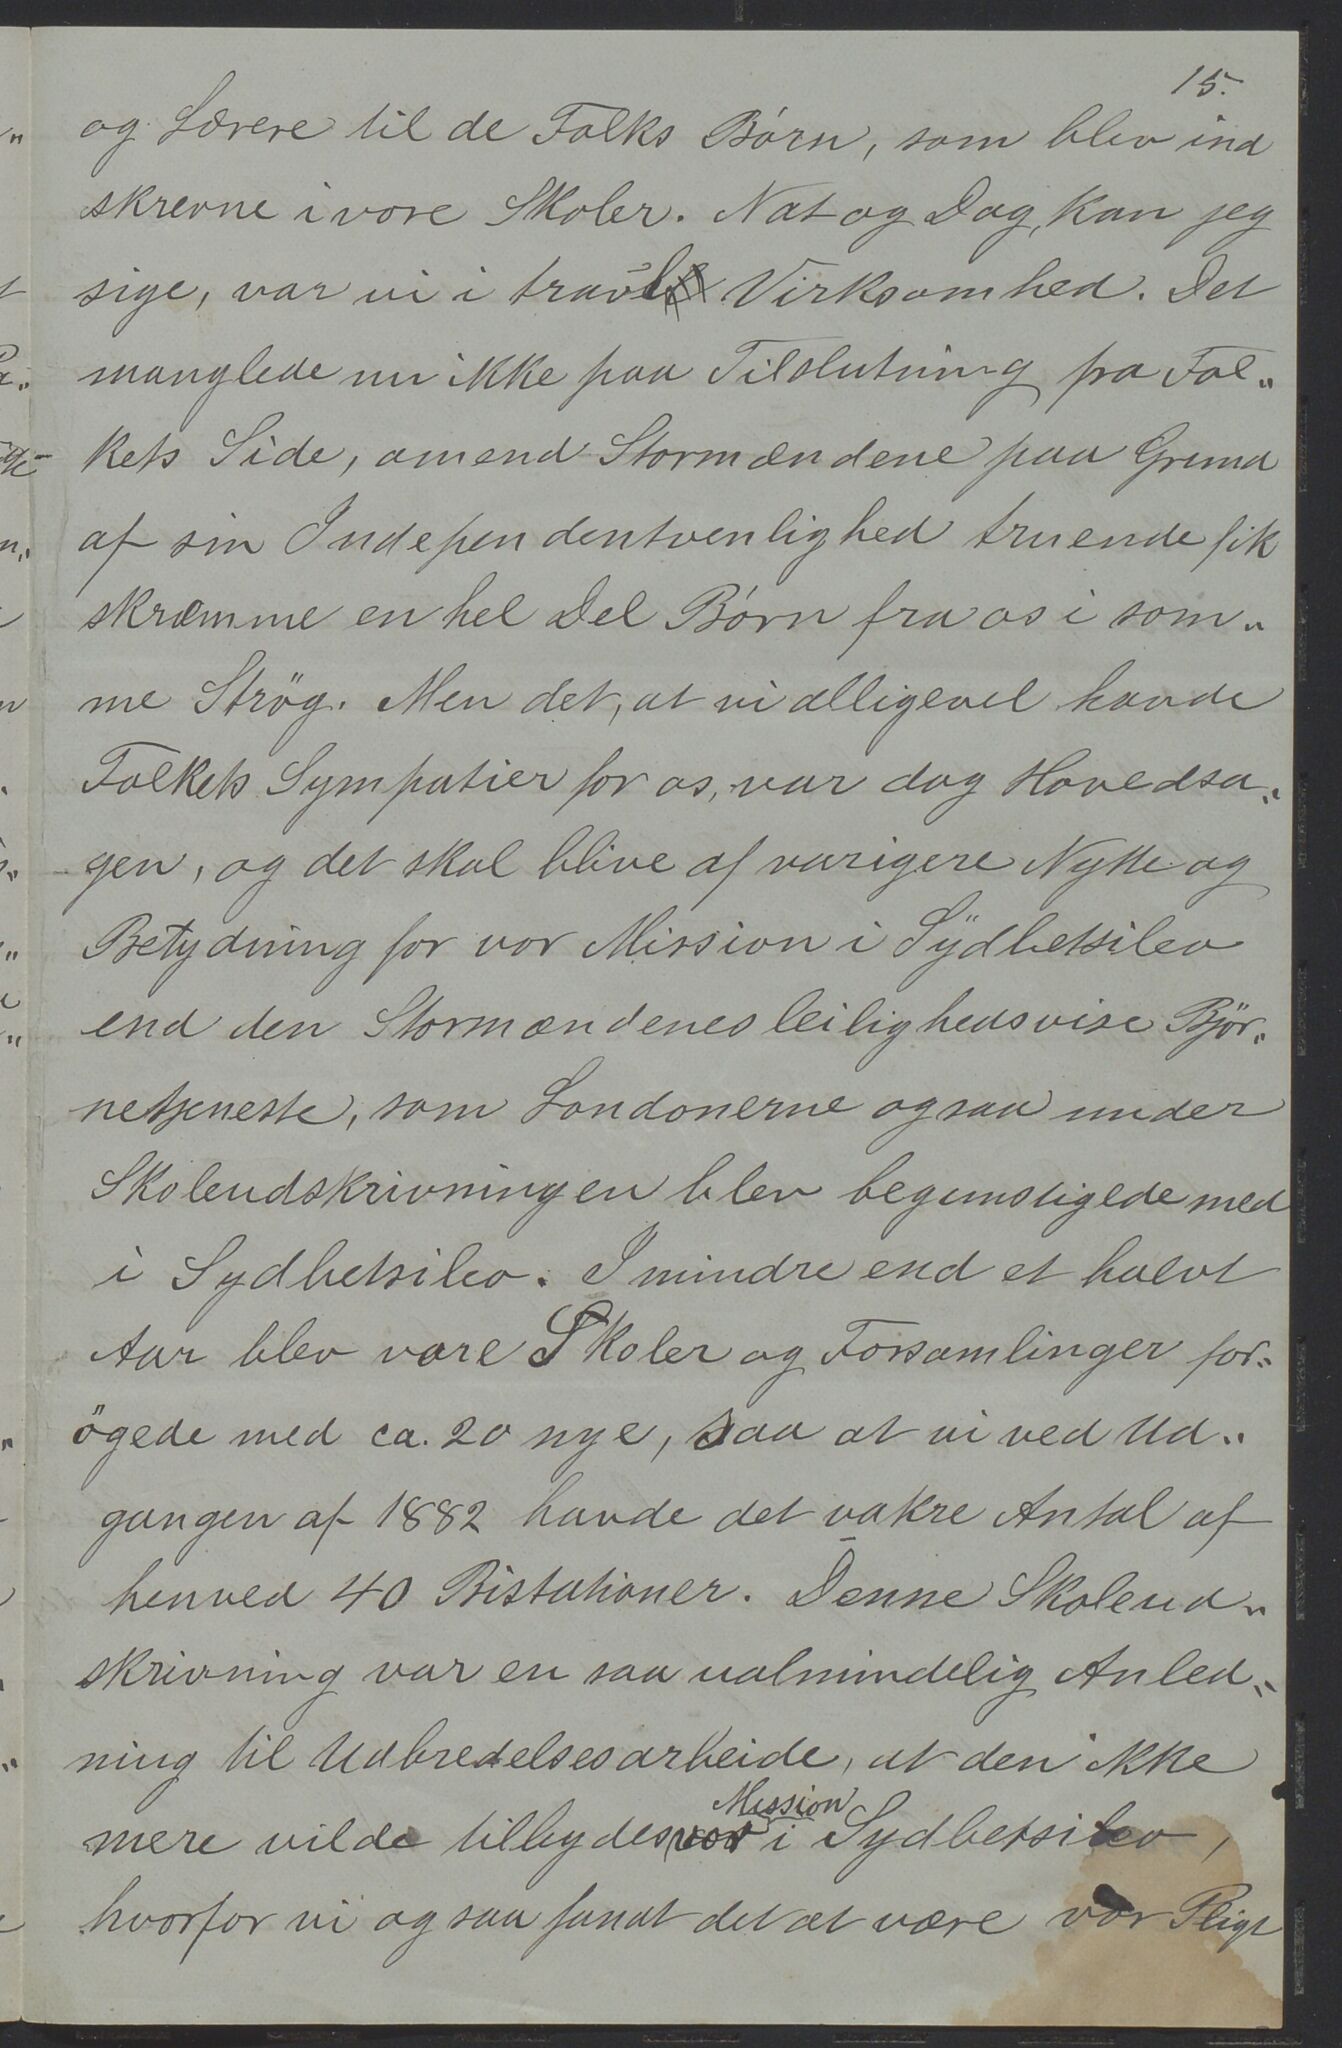 15.
og Lærere til de Folks Börn, som blev ind
skrevne i vore Skoler. Nat og Dag, kan jeg
sige, var vi i travl Virksomhed. Det
manglede nu ikke paa Tilslutning fra Fol„
kets Side, omend Stormændene paa Grund
af sin Independentvenlighed truende fik
skræmme en hel Del Börn fra os i som„
me Strög. Men det, at vi alligevel havde
Folkets Sympatier for os, var dog Hovedsa„
gen, og det skal blive af varigere Nytte og
Betydning for vor Mission i Sydbetsileo
end den Stormændenes leilighedsvise Björ„
netjeneste, som Londonerne ogsaa under
Skoleudskrivningen blev begunstigede med
i Sydbetsileo. I mindre end et halvt
Aar blev vore Skoler og Forsamlinger for„
ögede med ca. 20 nye, saa at vi ved Ud„
gangen af 1882 havde det vakre Antal af
henved 40 Bistationer. Denne Skoleud„
skrivning var en saa ualmindelig Anled„
ning til Udbredelsesarbeide, at den ikke
mere vilde tilbydes vor Mission i Sydbetsileo,
hvorfor vi ogsaa fandt det at være vor Pligt